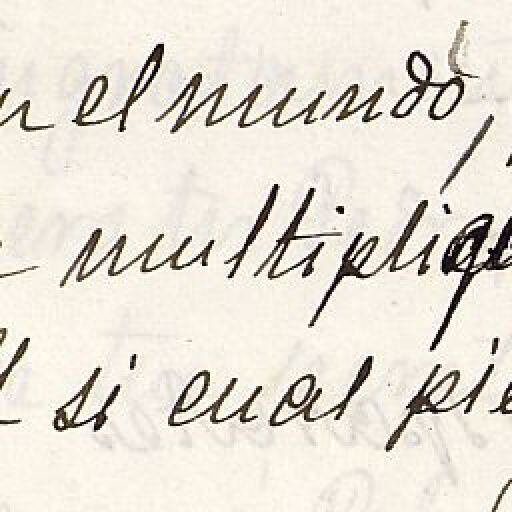 el mundo,
multipliqu
si cual pie